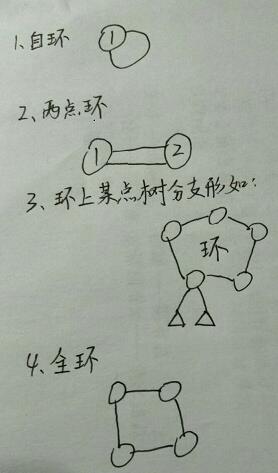 1、自环
1
2、两点环
1 2
3、环上某点树分支形如：
环
4、全环